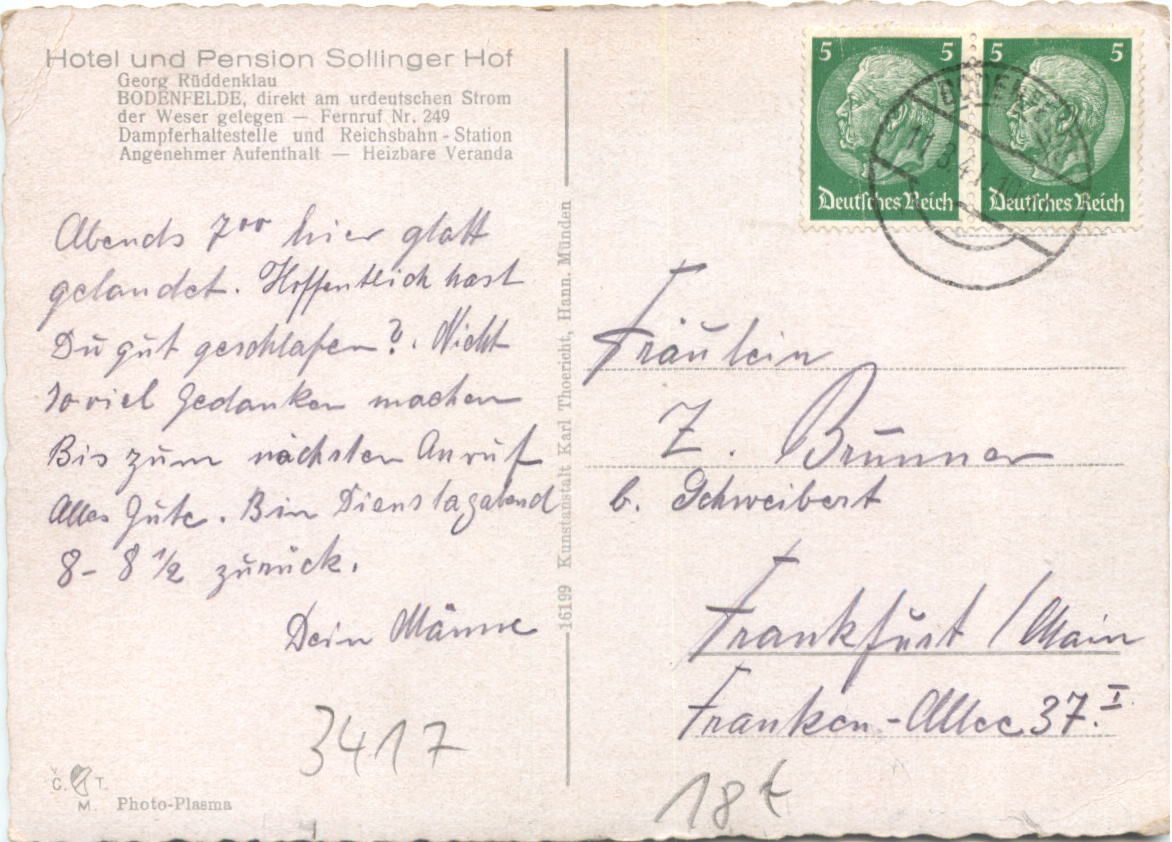 Hotel und Pension Sollinger Hof
Georg Rüddenklau
BODENFELDE, direkt am urdeutschen Strom
der Weser gelegen — Fernruf Nr. 249
Dampferhaltestelle und Reichsbahn-Station
Angenehmer Aufenthalt — Heizbare Veranda
Abends 7⁰⁰ hier glatt
gelandet. Hoffentlich hast
Du gut geschlafen?. Nicht
so viel Gedanken machen
Bis zum nächsten Anruf
Alles Gute. Bin Dienstagabend
8 - 8 1/2 zurück.
Dein Männe
3417
C. T.
M. Photo-Plasma
16199 Kunstanstalt Karl Thoericht, Hann. Münden
5 5
Deutsches Reich
5 5
Deutsches Reich
BODENFELDE
11.3.41
Fräulein
Z. Brunner
b. Schweibert
Frankfurt / Main
Franken-Allee 37.I
18t